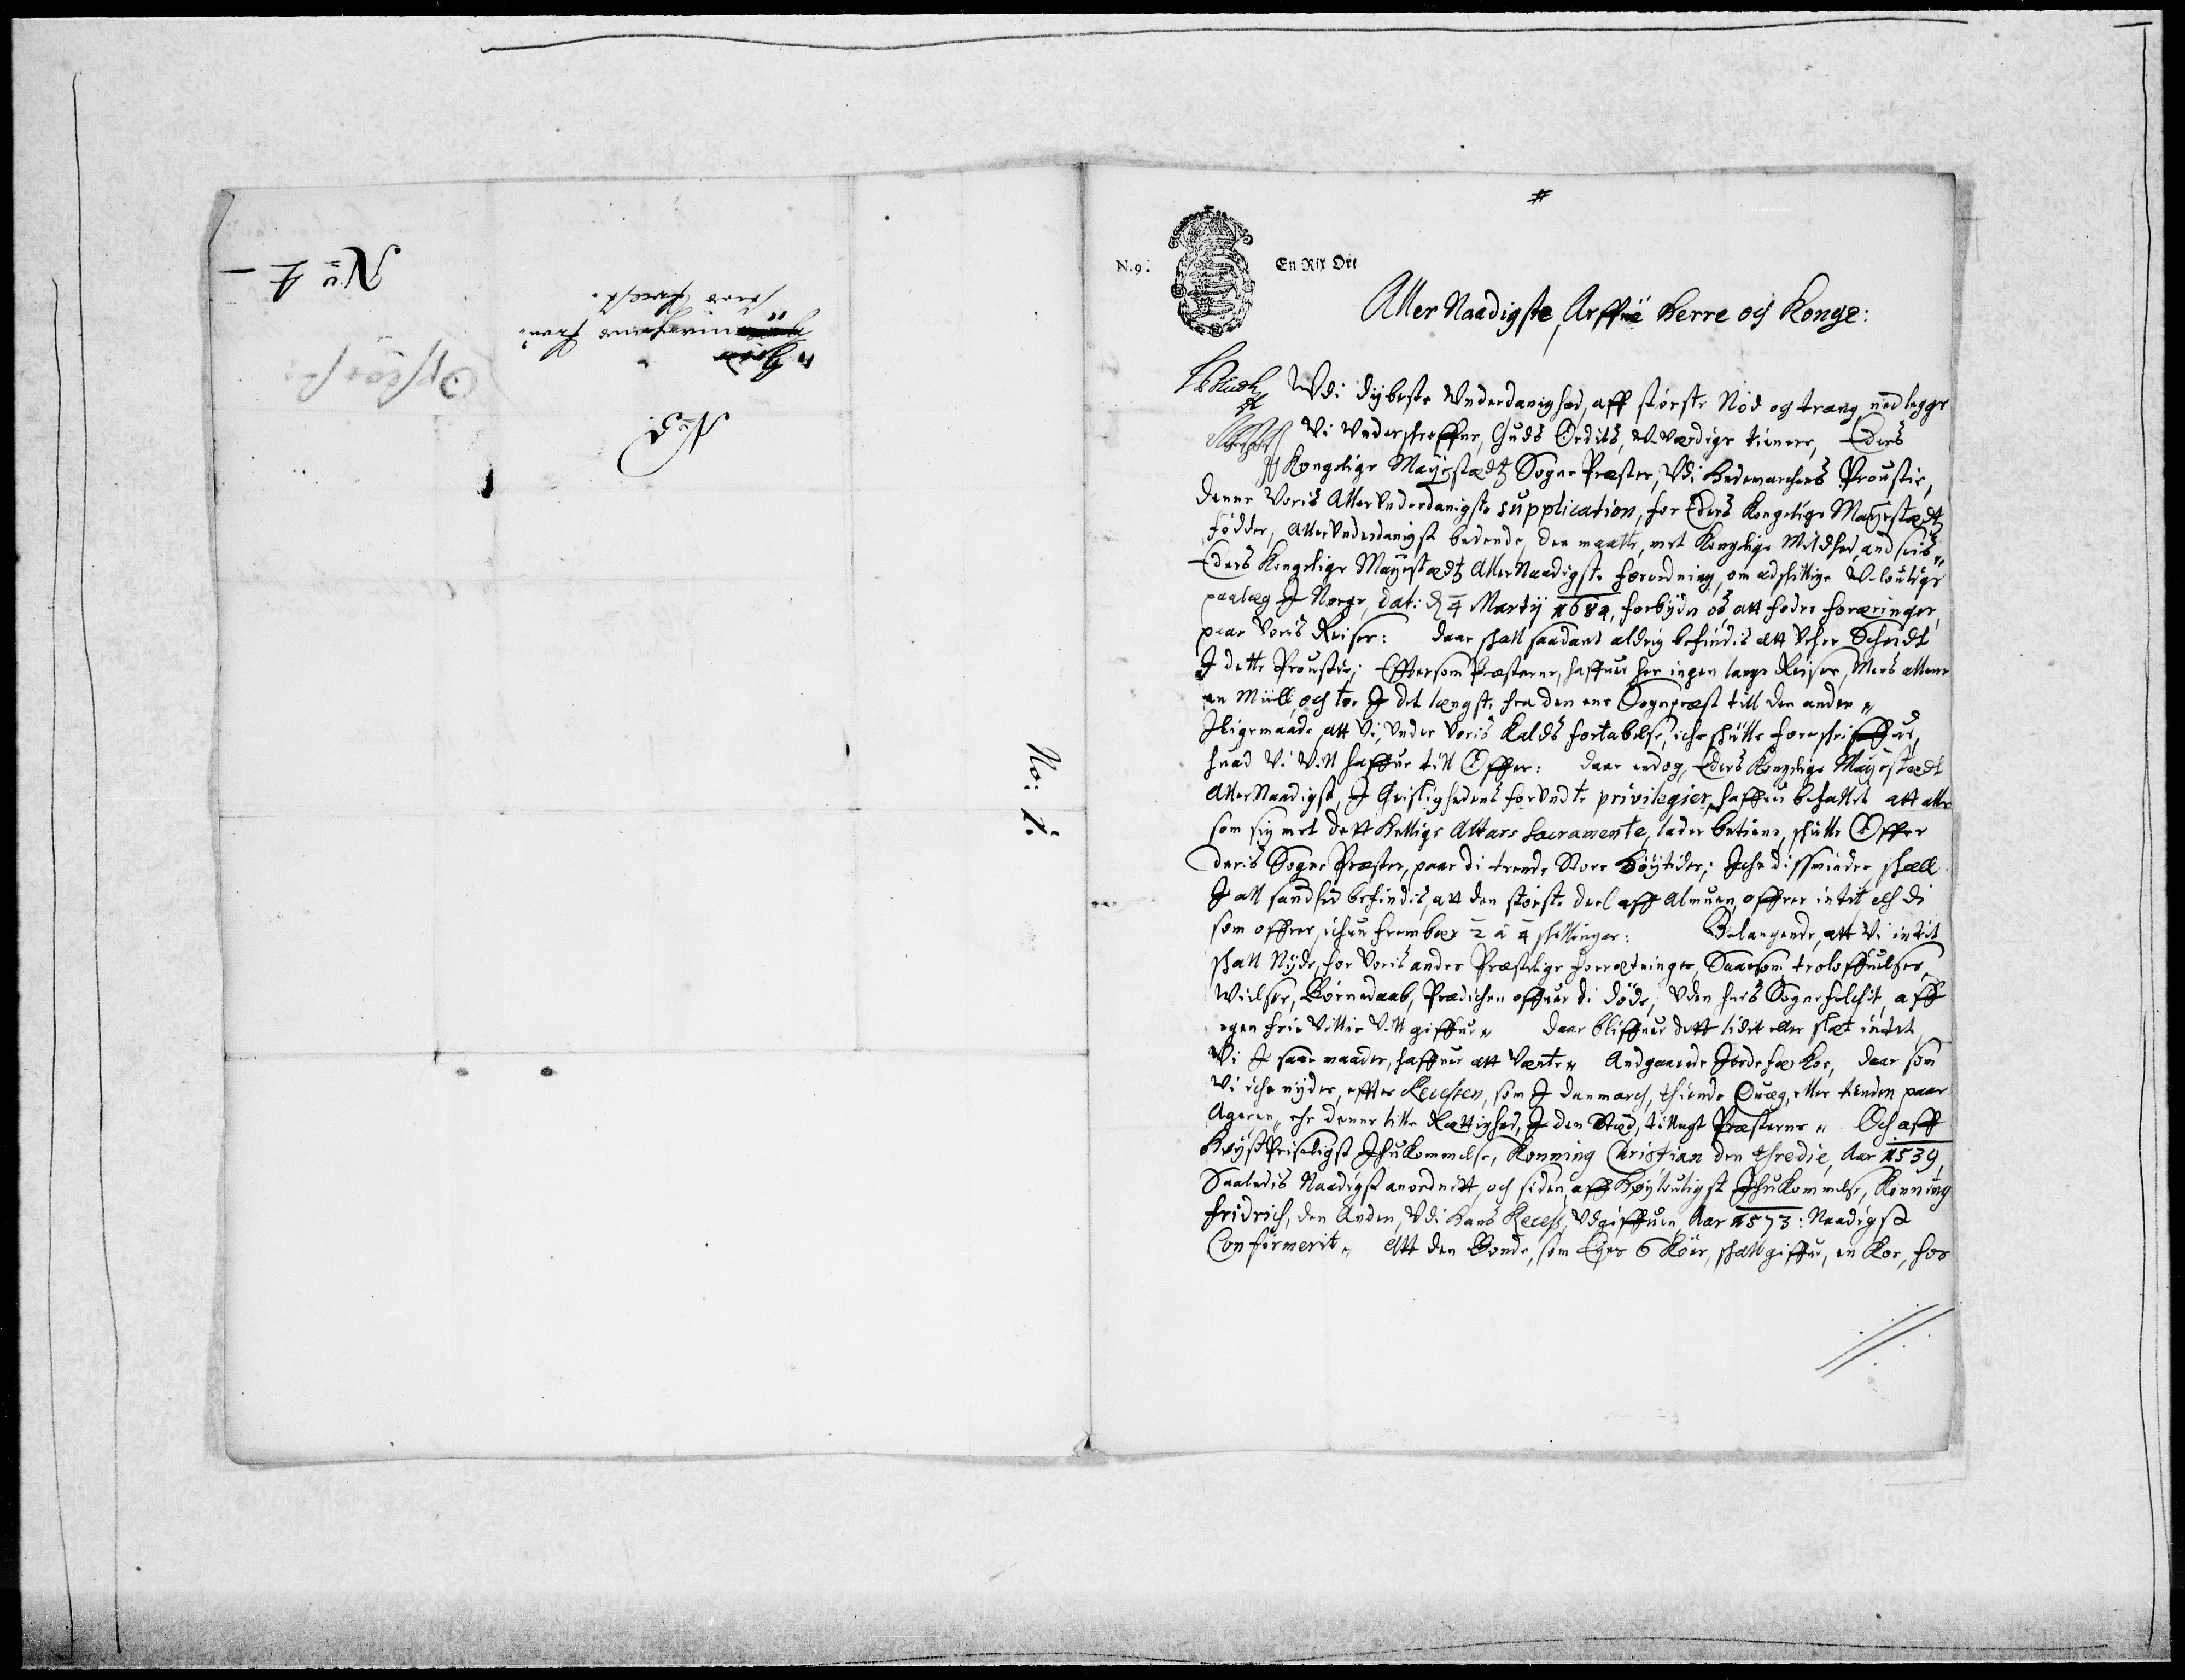 No 4
Opsatz
N. 9.
En Rix Ort
Aller Naadigste, Arffue Herre och Konge:
Wdi dybeste Vnderdanighed, aff største Nød og trang, nedlegge
Vi Vnderschreffne, Guds Ordits, V-værdige tienere, Eders
Kongelige Mayestædtz Sogne Præster, Vdi Hedemarchens Proustie,
denne Voris AllerVnderdanigste supplication, for Eders Kongelige Mayestædtz
fødder, AllerVnderdanigst bedende, den maatte, met Kongelige Mildhed, ansees
Eders Kongelige Mayestædtz AllerNaadigste forordning, om adskillige V-louglige
paalæg I Norge, dat: d 4 Martij 1684, forbyde os, att fodre foræringer,
paa Voris Reiser: daa skall saadant aldrig befindis att Vere Scheedt
I dette Proustie; Effter som Præsterne, haffuer her ingen lange Reiser, Mens alleene
en Miill, och to I det længste fra den ene Sognepræst till den anden
Iligemaade, att Vi, Vnder Voris Kalds fortabelse, iche schulle foreschriffue,
huad Vi Vill haffue till Offer: daa endog, Eders Kongelige Mayestædt
AllerNaadigst, I Geistlighedens forVndte privilegier, haffuer befallet att alle
som sig met dett Hellige Altars Sacramente, lader betiene, schulle Offer
deris Sogne Præster, paa di trende Store Høytider; Iche dissmindre, shall
I all sandhed befindis, att den største deel aff Almuen, offrer intet, och di
som offrer, ichun frembær 2 à 4 skellinger: Belangende, att Vi intet
shall Nyde, for Voris andre Præstelige forretninger, Saasom trolofuelser,
Wielser, Børnedaab, Prædichen offuer di døde, Vden hves Sognefolchet, aff
egen frie Villie Vill giffue daa bliffuer dett lidet eller slet intet
Vi I saa maader, haffuer att Vente Andgaaende Jordefær Koe, daa som
Vi iche nyder, effter Recessen, som I Danmarch, thiende Quæg, eller tienden paa
Ageren, ehr denne lille Rettighed, I den Sted, tillagt Præsterne Och aff
HøystPriseligst Ihukommelse, Konning Christian den thredie, Aar 1539,
Saaledis Naadigst anordnitt, och siden, aff Høyloulligst Ihukommelse, Konning
Fridrich, den Anden, Vdi Hans Recess, Vdgiffuen Aar 1573: Naadigst
Confirmerit, Att den Bonde, som Eyer 6 Køer, shall giffue, en Koe, for
No: 1.